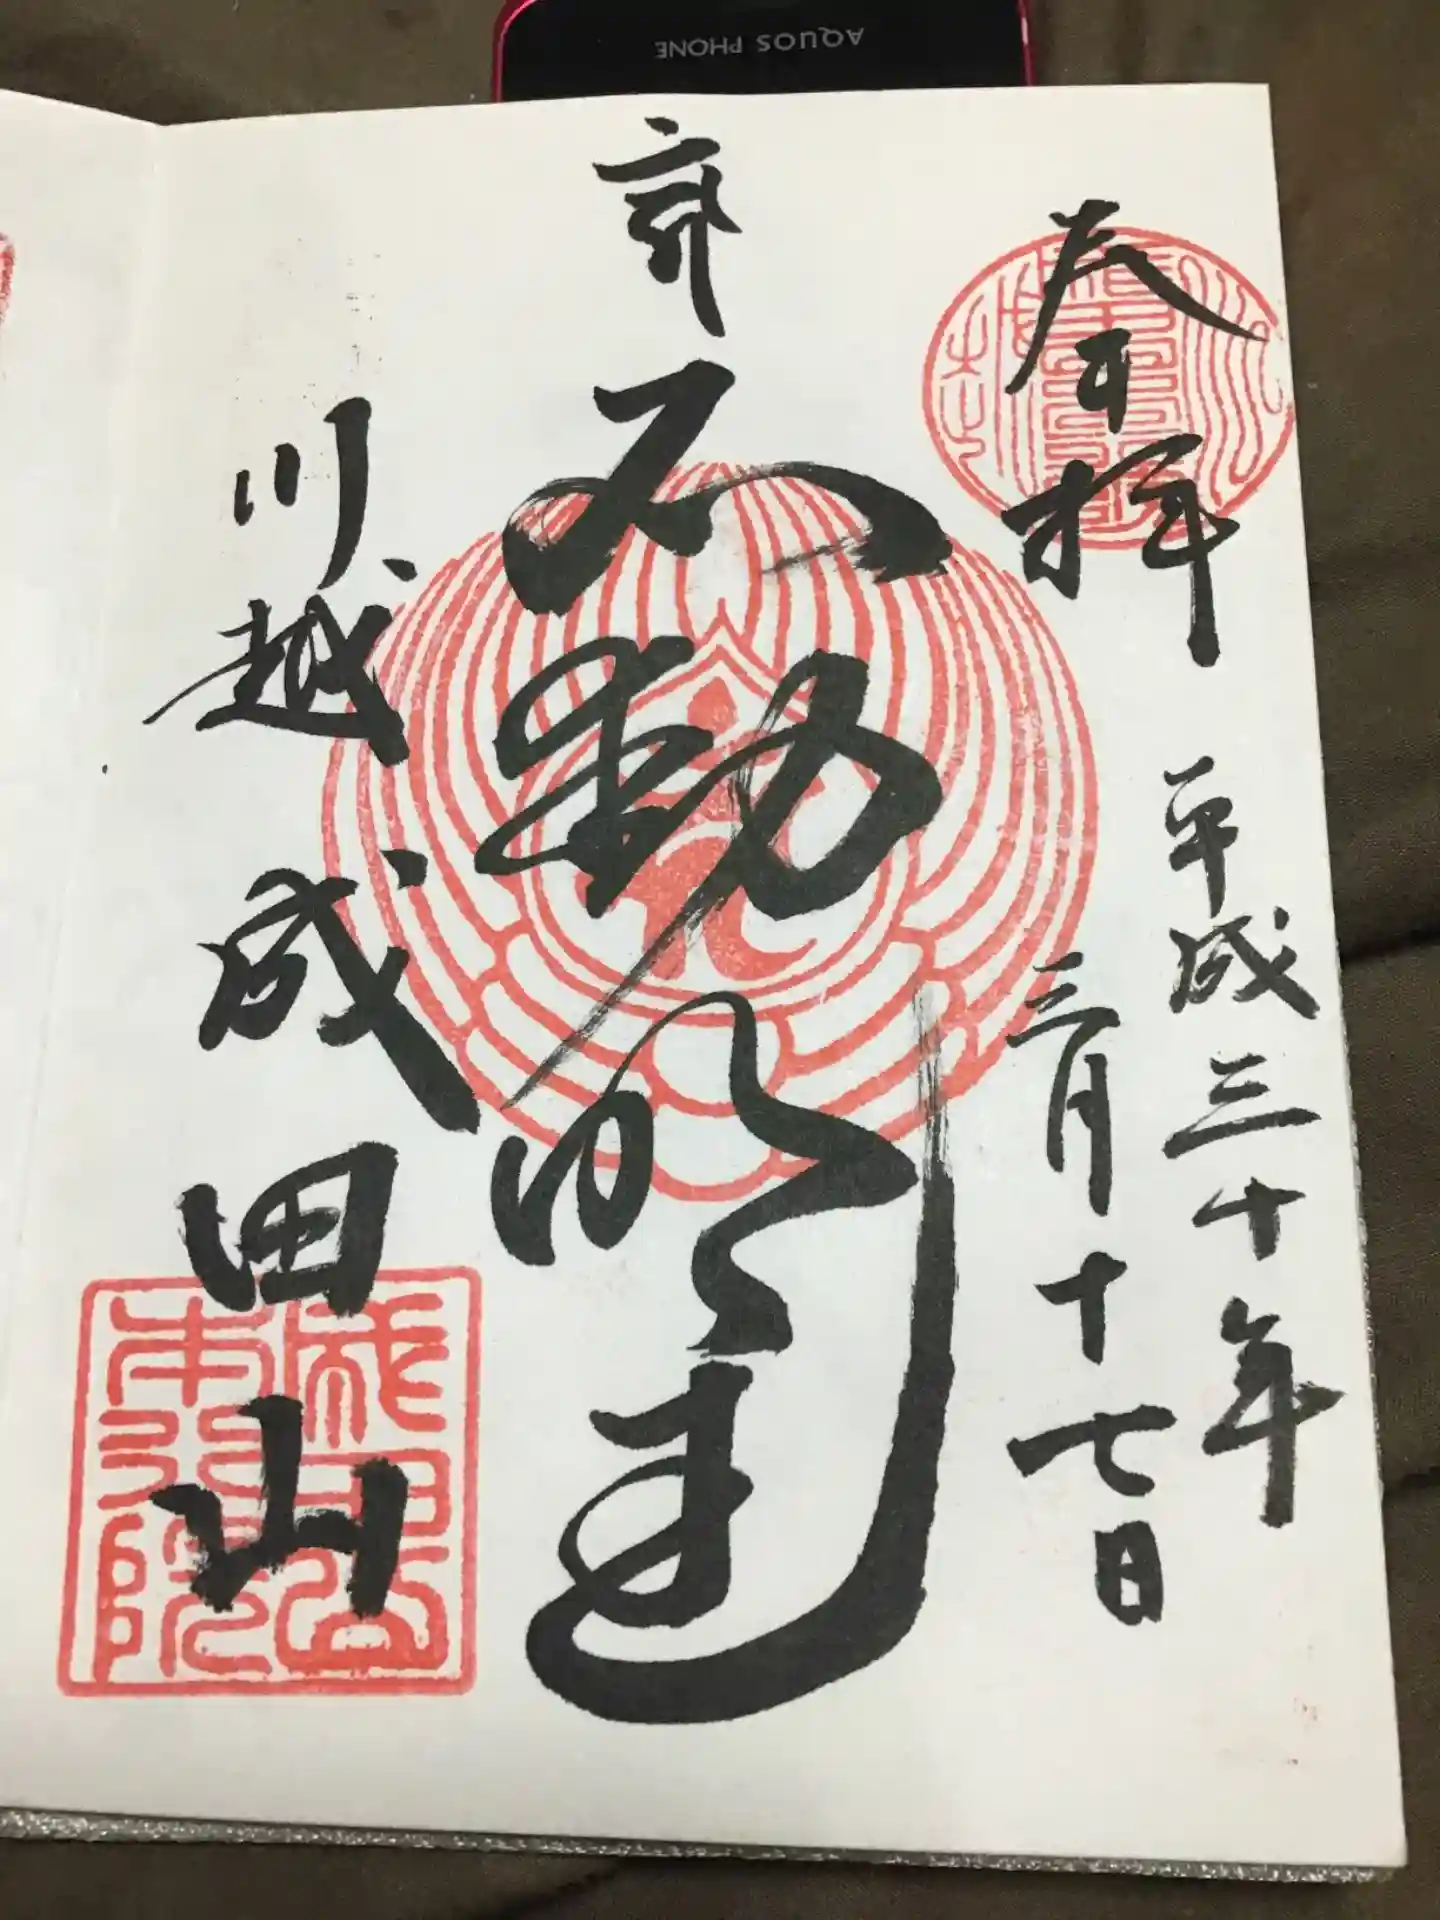 奉拝
平成三十年
三月十七日
不動明王
川越成田山
成田山
本行院
AQUOS PHONE